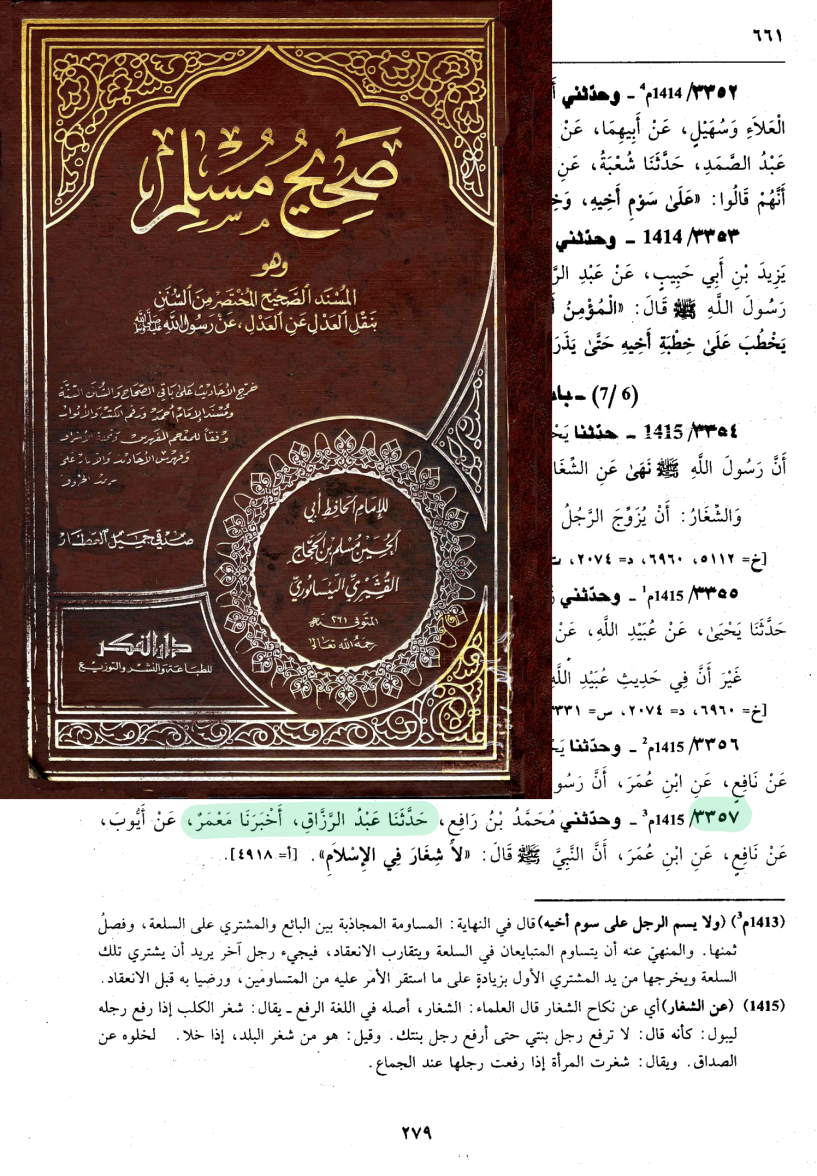 صَحِيحُ مُسْلِم
وهو
المُسْنَد الصَّحِيح المُخْتَصَر مِنَ السُّنَنِ
بنَقْلِ العَدْلِ عَنِ العَدْلِ، عَنْ رَسُولِ اللهِ ﷺ
خرج الأحاديث على باقي الصحاح والسنن الستة
ومسند الإمام أحمد ورقم الكتب والأبواب
صدقي جميل العطار
للإمام الحافظ أبي
الحسين مسلم بن الحجاج
القشيري النيسابوري
المتوفى ٢٦١ هـ
رحمه الله تعالى
دار الفكر
للطباعة والنشر والتوزيع
٦٦١
٣٣٥٢/ 1414م⁴ ـ وحدّثني
الْعَلاَءِ وَسُهَيْلٍ، عَنْ أَبِيهِمَا، عَنْ
عَبْدُ الصَّمَدِ، حَدَّثَنَا شُعْبَةُ، عَنِ
أَنَّهُمْ قَالُوا: «عَلَىٰ سَوْمِ أَخِيهِ، وَخِ
٣٣٥٣/ 1414 ـ وحدّثني
يَزِيدَ بْنِ أَبِي حَبِيبٍ، عَنْ عَبْدِ الرَّ
رَسُولَ اللَّهِ ﷺ قَالَ: «الْمُؤْمِنُ أَ
يَخْطُبَ عَلَىٰ خِطْبَةِ أَخِيهِ حَتَّىٰ يَذَرَ
(6 /7) ـ باب
٣٣٥٤/ 1415 ـ حدّثنا يَحْ
أَنَّ رَسُولَ اللَّهِ ﷺ نَهَىٰ عَنِ الشِّغَا
وَالشِّغَارُ: أَنْ يُزَوِّجَ الرَّجُلُ
[خ= ٥١١٢، ٦٩٦٠، د= ٢٠٧٤، ت
٣٣٥٥/ 1415م¹ ـ وحدّثني زُ
حَدَّثَنَا يَحْيَىٰ، عَنْ عُبَيْدِ اللَّهِ، عَنْ
غَيْرَ أَنَّ فِي حَدِيثِ عُبَيْدِ اللَّهِ
[خ= ٦٩٦٠، د= ٢٠٧٤، س= ٣٣١
٣٣٥٦/ 1415م² ـ وحدّثنا يَحْ
عَنْ نَافِعٍ، عَنِ ابْنِ عُمَرَ، أَنَّ رَسُو
٣٣٥٧/ 1415م³ ـ وحدّثني مُحَمَّدُ بْنُ رَافِعٍ، حَدَّثَنَا عَبْدُ الرَّزَّاقِ، أَخْبَرَنَا مَعْمَرٌ، عَنْ أَيُّوبَ،
عَنْ نَافِعٍ، عَنِ ابْنِ عُمَرَ، أَنَّ النَّبِيَّ ﷺ قَالَ: «لاَ شِغَارَ فِي الإِسْلاَمِ». [أ= ٤٩١٨].
(1413م³) (ولا يسم الرجل على سوم أخيه) قال في النهاية: المساومة المجاذبة بين البائع والمشتري على السلعة، وفصلُ
ثمنها. والمنهيّ عنه أن يتساوم المتبايعان في السلعة ويتقارب الانعقاد، فيجيء رجل آخر يريد أن يشتري تلك
السلعة ويخرجها من يد المشتري الأول بزيادةٍ على ما استقر الأمر عليه من المتساومَين، ورضيا به قبل الانعقاد.
(1415) (عن الشغار) أي عن نكاح الشغار قال العلماء: الشغار، أصله في اللغة الرفع ـ يقال: شغر الكلب إذا رفع رجله
ليبول: كأنه قال: لا ترفع رجل بنتي حتى أرفع رجل بنتك. وقيل: هو من شغر البلد، إذا خلا. لخلوه عن
الصداق. ويقال: شغرت المرأة إذا رفعت رجلها عند الجماع.
٢٧٩